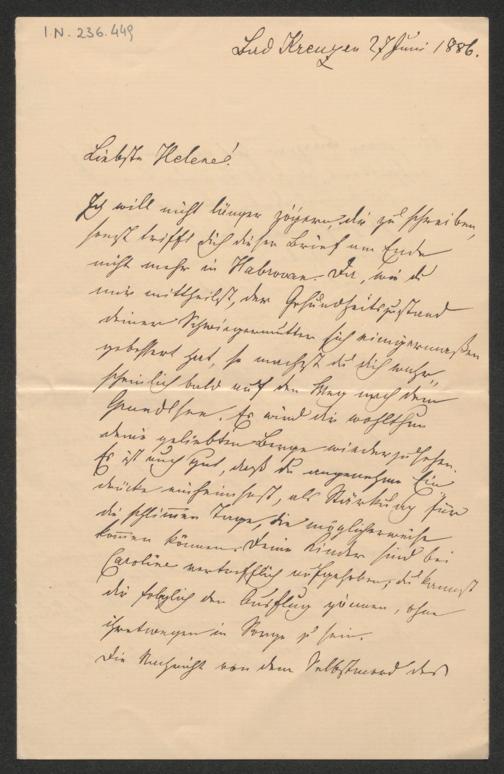 I.N. 236.449
Bad Kreuzen 27 Juni 1886.
Liebste Helene!
Ich will nicht länger zögern, dir zu schreiben,
sonst trifft dich dieser Brief am Ende
nicht mehr in Habrovan. Da, wie du
mir mittheilst, der Gesundheitszustand
deiner Schwiegermutter sich einigermaßen
gebessert hat, so machst du dich wahr„
scheinlich bald auf den Weg nach dem
Grundlsee. Es wird dir wohlthun
deine geliebten Berge wiederzusehen.
Es ist auch gut, daß du angenehme Ein
drücke einheimsest, als Stärkung für
die schlimmen Tage, die möglicherweise
kommen können. Deine Kinder sind bei
Caroline vortrefflich aufgehoben; du kannst
dir folglich den Ausflug gönnen, ohne
ihretwegen in Sorge zu sein.
Die Nachricht von dem Selbstmord des